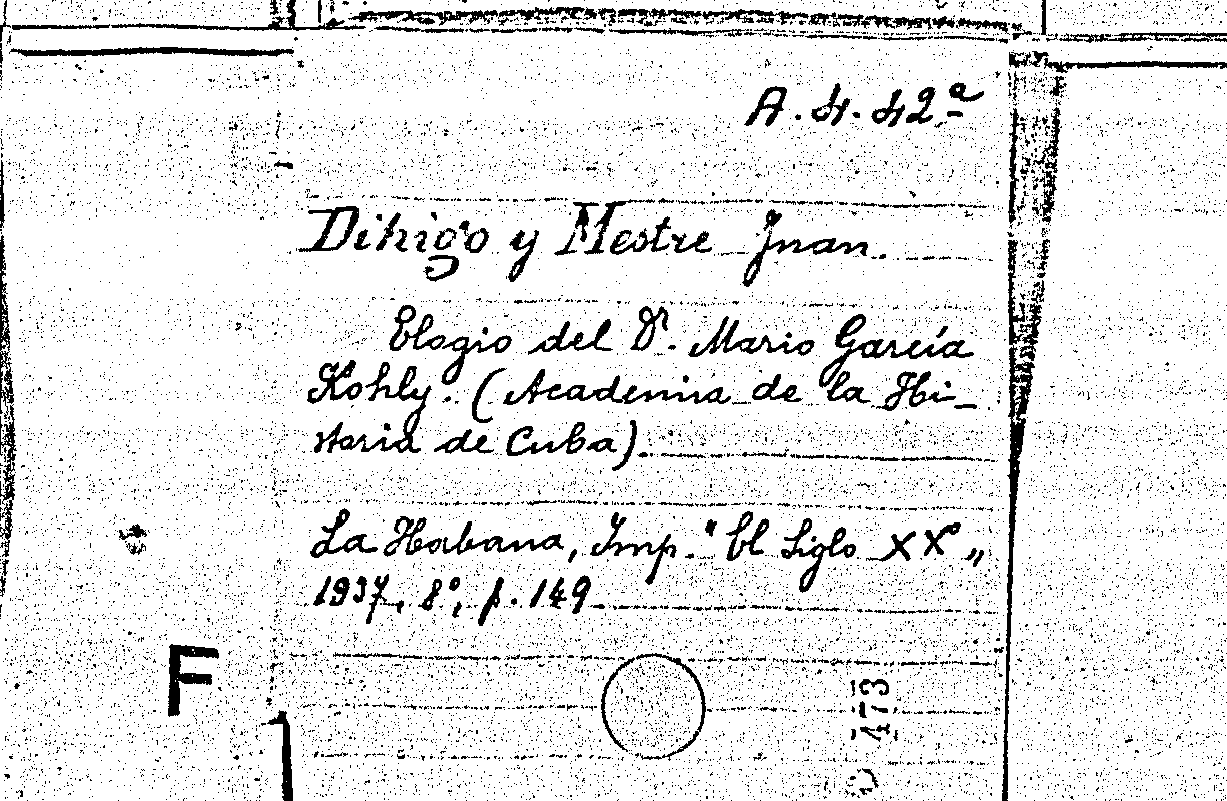 A. 4. 42ª
Dihigo y Mestre Juan.
Elogio del Dr. Mario García
Kohly. (Academia de la His-
toria de Cuba).
La Habana, Imp. "El Siglo XX",
1937, 8º, p. 149.
F
473